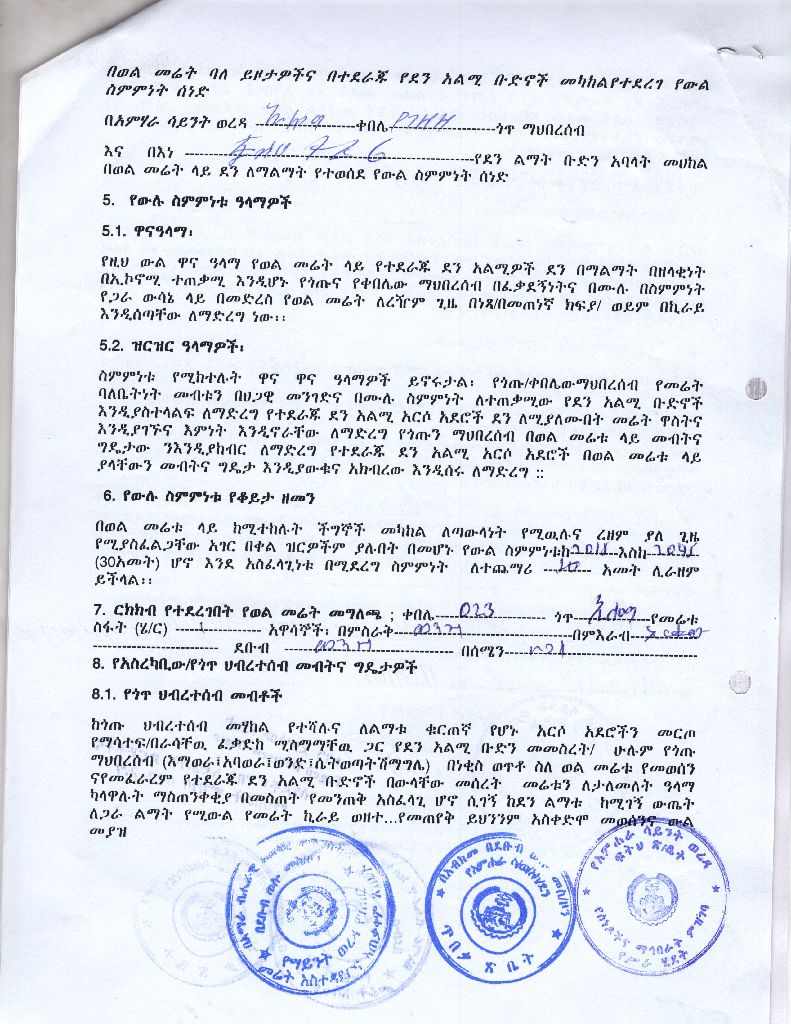 በወል መሬት ባለ ይዞታዎችና በተደራጁ የደን አልሚ ቡድኖች መካከልየተደረገ የውል
ስምምነት ሰነድ
በአምሃራ ሳይንት ወረዳ ----------ቀበሌ----------ጎጥ ማህበረሰብ
እና በእነ ----------የደን ልማት ቡድን አባላት መሀከል
በወል መሬት ላይ ደን ለማልማት የተወሰደ የውል ስምምነት ሰነድ
5. የውሉ ስምምነቱ ዓላማዎች
5.1. ዋናዓላማ፡
የዚህ ውል ዋና ዓላማ የወል መሬት ላይ የተደራጁ ደን አልሚዎች ደን በማልማት በዘላቂነት
በኢኮኖሚ ተጠቃሚ እንዲሆኑ የጎጡና የቀበሌው ማህበረሰብ በፈቃደኝነትና በሙሉ በስምምነት
የጋራ ውሳኔ ላይ በመድረስ የወል መሬት ለረዥም ጊዜ በነጻ/በመጠነኛ ክፍያ/ ወይም በኪራይ
እንዲሰጣቸው ለማድረግ ነው፡፡
5.2. ዝርዝር ዓላማዎች፡
ስምምነቱ የሚከተሉት ዋና ዋና ዓላማዎች ይኖሩታል፡ የጎጡ/ቀበሌውማህበረሰብ የመሬት
ባለቤትነት መብቱን በህጋዊ መንገድና በሙሉ ስምምነት ለተጠቃሚው የደን አልሚ ቡድኖች
እንዲያስተላልፍ ለማድረግ የተደራጁ ደን አልሚ አርሶ አደሮች ደን ለሚያለሙበት መሬት ዋስትና
እንዲያገኙና እምነት እንዲኖራቸው ለማድረግ የጎጡን ማህበረሰብ በወል መሬቱ ላይ መብትና
ግዴታው ንእንዲያከብር ለማድረግ የተደራጁ ደን አልሚ አርሶ አደሮች በወል መሬቱ ላይ
ያላቸውን መብትና ግዴታ እንዲያውቁና አክብረው እንዲሰሩ ለማድረግ ::
6. የውሉ ስምምነቱ የቆይታ ዘመን
በወል መሬቱ ላይ ከሚተከሉት ችግኞች መካከል ለጣውላነት የሚዉሉና ረዘም ያለ ጊዜ
የሚያስፈልጋቸው አገር በቀል ዝርዎችም ያሉበት በመሆኑ የውል ስምምነቱከ-----እስከ-----
(30አመት) ሆኖ እንደ አስፈላጊነቱ በሚደረግ ስምምነት ለተጨማሪ ---10--- አመት ሊራዘም
ይችላል፡፡
7. ርክክብ የተደረገበት የወል መሬት መግለጫ ; ቀበሌ---023--- ጎጥ-----የመሬቱ
ስፋት (ሄ/ር) ---1--- አዋሳኞች፡ በምስራቅ----------በምእራብ-----
---------- ደቡብ ---------- በሰሜን----------
8. የአስረካቢው/የጎጥ ህብረተሰብ መብትና ግዴታዎች
8.1. የጎጥ ህብረተሰብ መብቶች
ከጎጡ ህብረተሰብ መሃከል የተሻሉና ለልማቱ ቁርጠኛ የሆኑ አርሶ አደሮችን መርጦ
የማሳተፍ/በራሳቸዉ ፈቃድከ ሚስማማቸዉ ጋር የደን አልሚ ቡድን መመስረት/ ሁሉም የጎጡ
ማህበረሰብ (አማወራ፤አባወራ፤ወንድ፤ሴትወጣትሽማግሌ) በነቂስ ወጥቶ ስለ ወል መሬቱ የመወሰን
ናየመፈራረም የተደራጁ ደን አልሚ ቡድኖች በውላቸው መሰረት መሬቱን ለታለመለት ዓላማ
ካላዋሉት ማስጠንቀቂያ በመስጠት የመንጠቅ አስፈላጊ ሆኖ ሲገኝ ከደን ልማቱ ከሚገኝ ውጤት
ለጋራ ልማት የሚውል የመሬት ኪራይ ወዘተ...የመጠየቅ ይህንንም አስቀድሞ መወሰንና ውል
መያዝ
የአምሐራ ሳይንት ወረዳ
ፍትህ ጽ/ቤት
ጥበቃ ጽ ቤት